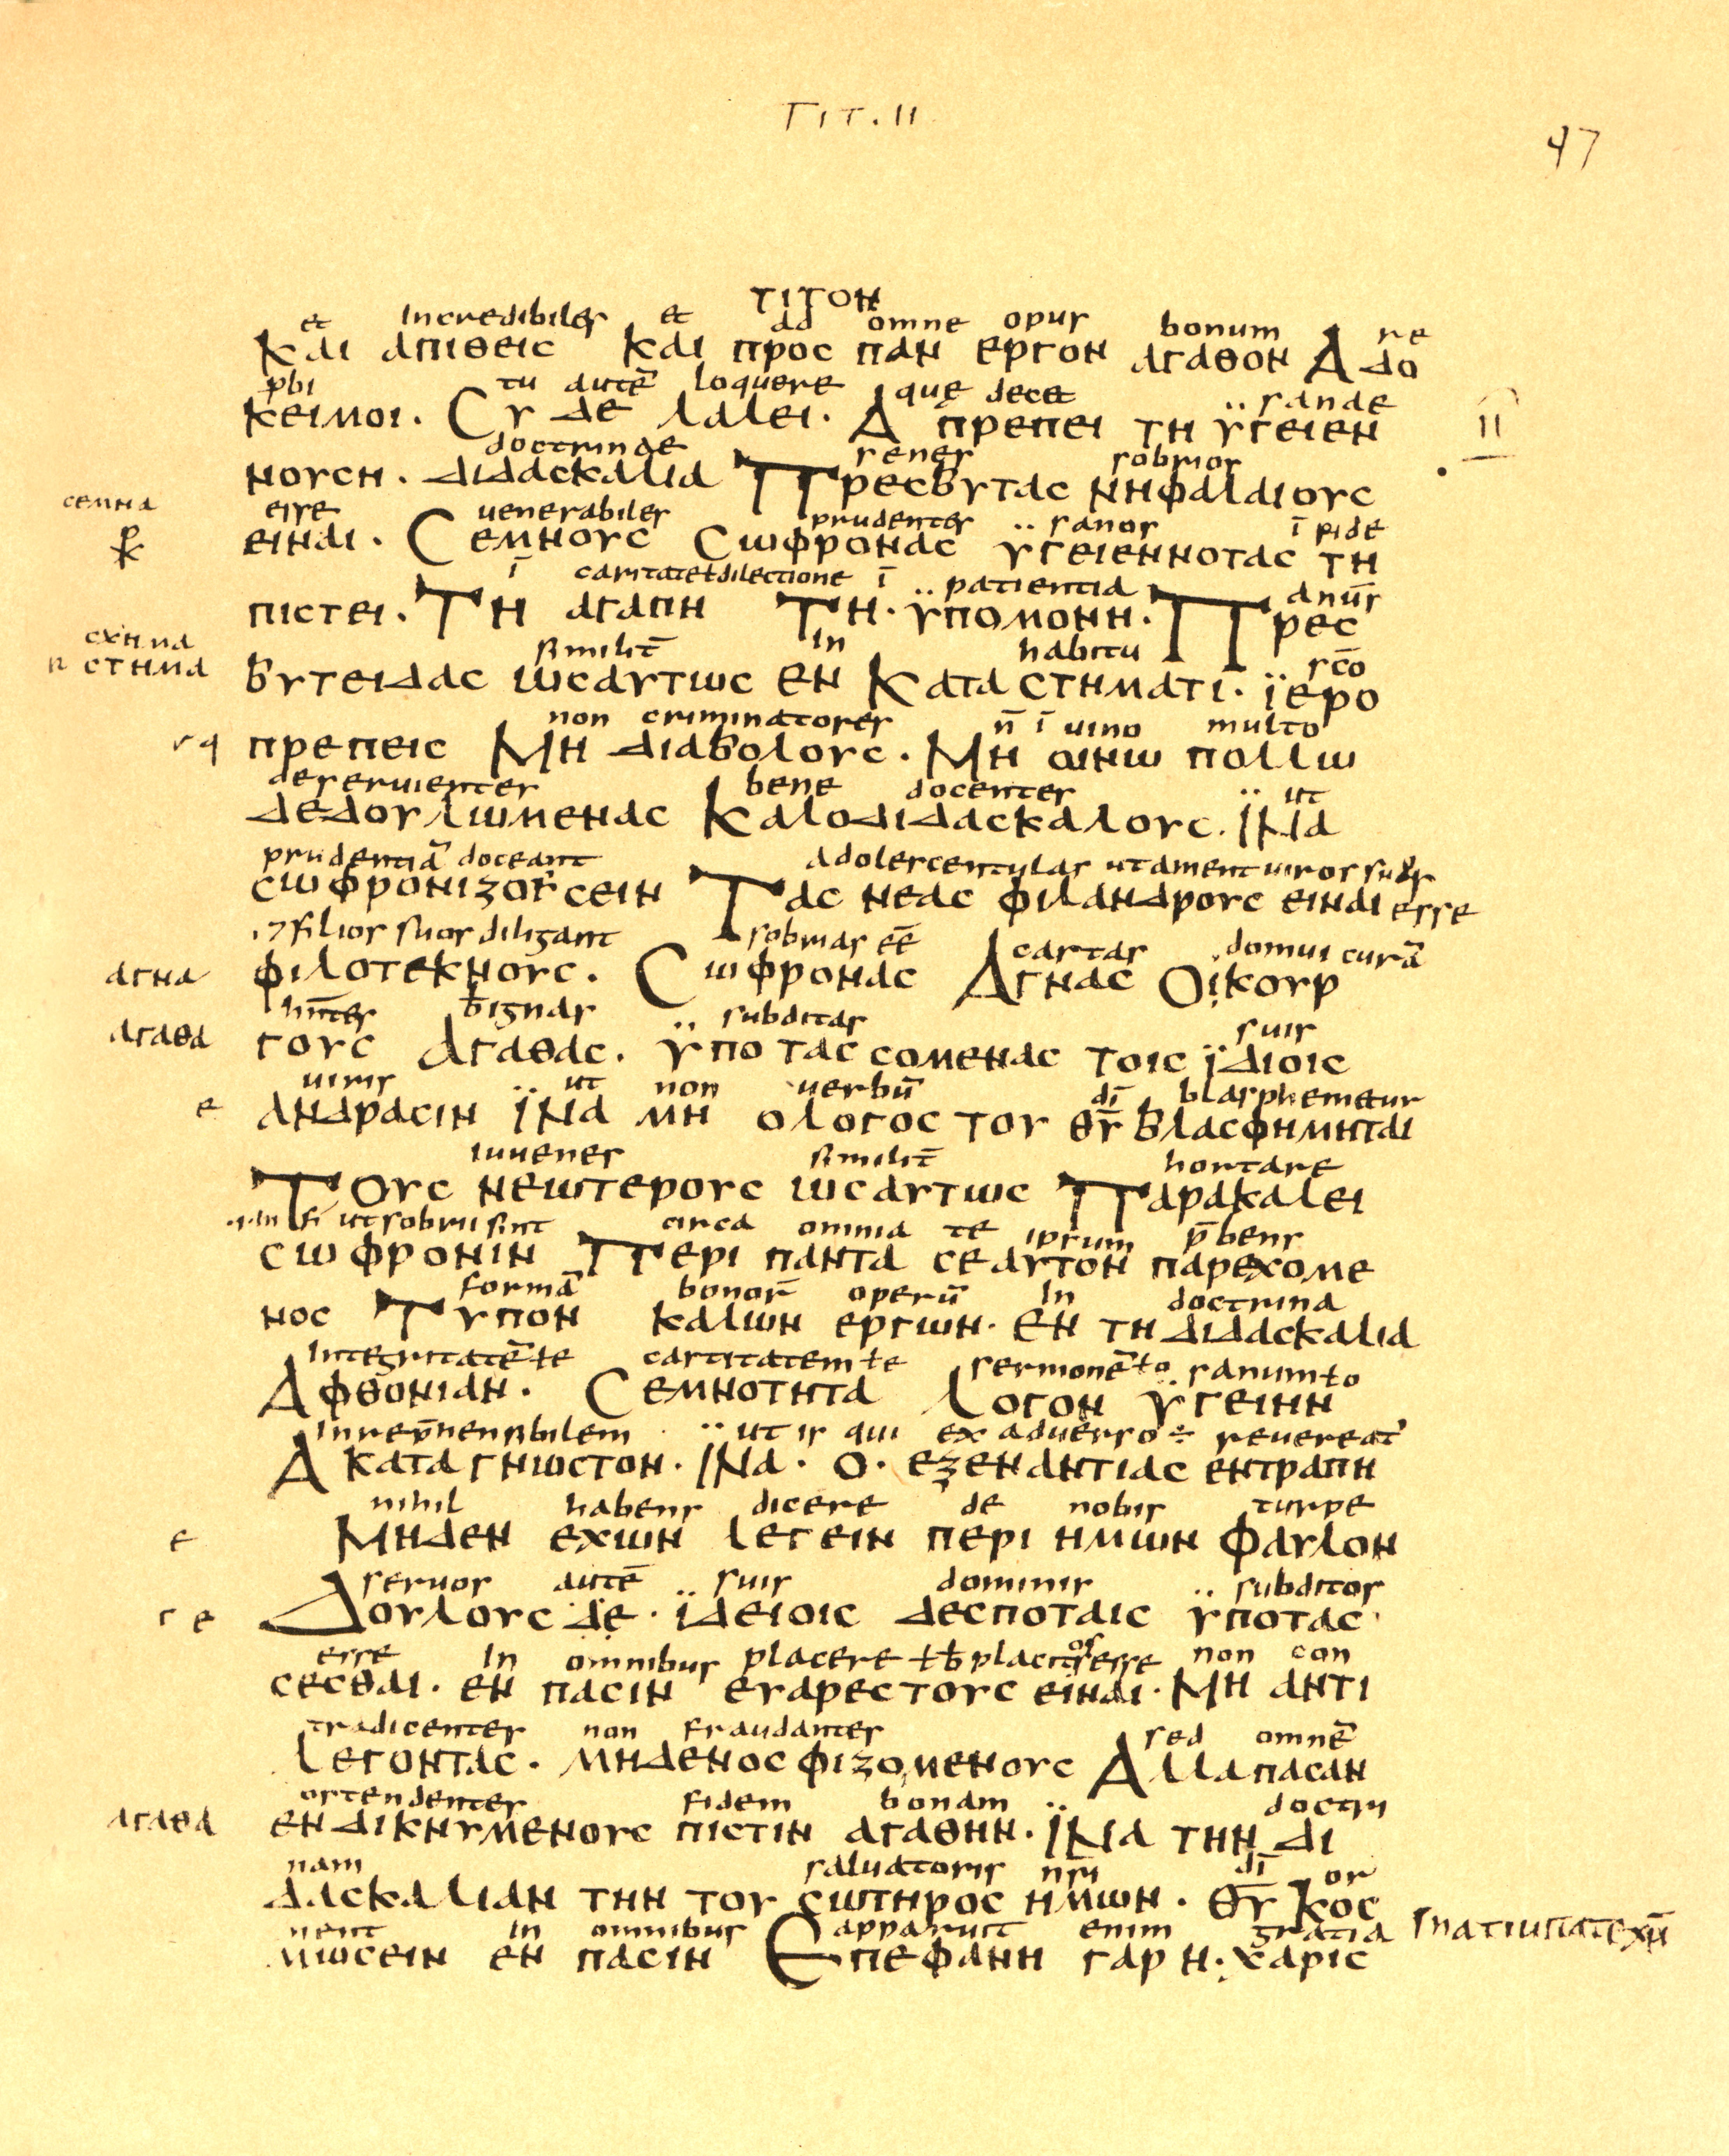 TIT. II
47
ΤΙΤΟΝ
et incredibiles et ad omne opus bonum re
ΚΑΙ ΑΠΙΘΕΙC ΚΑΙ ΠΡΟC ΠΑΝ ΕΡΓΟΝ ΑΓΑΘΟΝ ΑΔΟ
pbi tu autē loquere que decet sanae
ΚΕΙΜΟΙ. CΥ ΔΕ ΛΑΛΕΙ. Α ΠΡΕΠΕΙ ΤΗ ΥΓΕΙΕΝ
II
doctrinae senes sobrios
ΝΟΥCΗ. ΔΙΔΑCΚΑΛΙΑ ΠΡΕCΒΥΤΑC ΝΗΦΑΛΑΙΟΥC
CΕΜΝΑ
esse uenerabiles prudentes sanos ī fide
ΕΙΝΑΙ. CΕΜΝΟΥC CΩΦΡΟΝΑC ΥΓΕΙΕΝΝΟΤΑC ΤΗ
ī caritate ł dilectione ī patientia anūs
ΠΙCΤΕΙ. ΤΗ ΑΓΑΠΗ ΤΗ. ΥΠΟΜΟΝΗ. ΠΡΕC
CΧΗΜΑ
CΤΗΜΑ
similit̄ in habitu sc̄o
ΒΥΤΕΙΔΑC ΩCΑΥΤΩC ΕΝ ΚΑΤΑCΤΗΜΑΤΙ. ΪΕΡΟ
non criminatores n̄ ī uino multo
ΠΡΕΠΕΙC ΜΗ ΔΙΑΒΟΛΟΥC. ΜΗ ΟΙΝΩ ΠΟΛΛΩ
deseruientes bene docentes ut
ΔΕΔΟΥΛΩΜΕΝΑC ΚΑΛΟΔΙΔΑCΚΑΛΟΥC. ΪΝΑ
prudentiā doceant adolescentulas ut ament uiros suos
CΩΦΡΟΝΙΖΟΥCΕΙΝ ΤΑC ΝΕΑC ΦΙΛΑΝΔΡΟΥC ΕΙΝΑΙ esse
⁊ filios suos diligant sobrias ēē castas domui curā
ΑΓΝΑ
ΦΙΛΟΤΕΚΝΟΥC. CΩΦΡΟΝΑC ΑΓΝΑC ΟΙΚΟΥΡ
h̄ntes b̄ignas subditas suis
ΑΓΑΘΑ
ΓΟΥC ΑΓΑΘΑC. ΫΠΟ ΤΑC CΟΜΕΝΑC ΤΟΙC ΪΔΙΟΙC
uiris ut non uerbū dī blasphemetur
e
ΑΝΔΡΑCΙΝ ΪΝΑ ΜΗ ΟΛΟΓΟC ΤΟΥ ΘῩ ΒΛΑCΦΗΜΗΤΑΙ
iuuenes similit̄ hortare
ΤΟΥC ΝΕΩΤΕΡΟΥC ΩCΑΥΤΩC ΠΑΡΑΚΑΛΕΙ
ut sobrii sint circa omnia te ipsum p̄bens
CΩΦΡΟΝΙΝ ΠΕΡΙ ΠΑΝΤΑ CΕΑΥΤΟΝ ΠΑΡΕΧΟΜΕ
formā bonor̄ operū in doctrina
ΝΟC ΤΥΠΟΝ ΚΑΛΩΝ ΕΡΓΩΝ. ΕΝ ΤΗ ΔΙΔΑCΚΑΛΙΑ
integritatē ł te castitatem ł e sermonē ł o sanum ł o
ΑΦΘΟΝΙΑΝ. CΕΜΝΟΤΗΤΑ ΛΟΓΟΝ ΫΓΕΙΗΝ
inrep̄hensibilem ut is qui ex aduerso ÷ reuereat̄
ΑΚΑΤΑΓΝΩCΤΟΝ. ΪΝΑ. Ο. ΕΞΕΝΑΝΤΙΑC ΕΝΤΡΑΠΗ
nihil habens dicere de nobis turpe
e
ΜΗΔΕΝ ΕΧΩΝ ΛΕΓΕΙΝ ΠΕΡΙ ΗΜΩΝ ΦΑΥΛΟΝ
seruos autē suis dominis subditos
ΔΟΥΛΟΥC ΔΕ. ΪΔΕΙΟΙC ΔΕCΠΟΤΑΙC ΫΠΟΤΑC
esse in omnibus placere ł b̄placitos esse non con
CΕCΘΑΙ. ΕΝ ΠΑCΙΝ ΕΥΑΡΕCΤΟΥC ΕΙΝΑΙ. ΜΗ ΑΝΤΙ
tradicentes non fraudantes sed omnē
ΛΕΓΟΝΤΑC. ΜΗΔΕΝΟCΦΙΖΟΜΕΝΟΥC ΑΛΛΑ ΠΑCΑΝ
ostendentes fidem bonam doctri
ΑΓΑΘΑ
ΕΝΔΙΚΝΥΜΕΝΟΥC ΠΙCΤΙΝ ΑΓΑΘΗΝ. ΪΝΑ ΤΗΝ ΔΙ
nam saluatoris nr̄i dī or
ΔΑCΚΑΛΙΑΝ ΤΗΝ ΤΟΥ CΩΤΗΡΟC ΗΜΩΝ. ΘῩ ΚΟC
nent in omnibus apparuit enim gratia
ΜΩCΕΙΝ ΕΝ ΠΑCΙΝ ΕΠΕΦΑΝΗ ΓΑΡ Η. ΧΑΡΙC